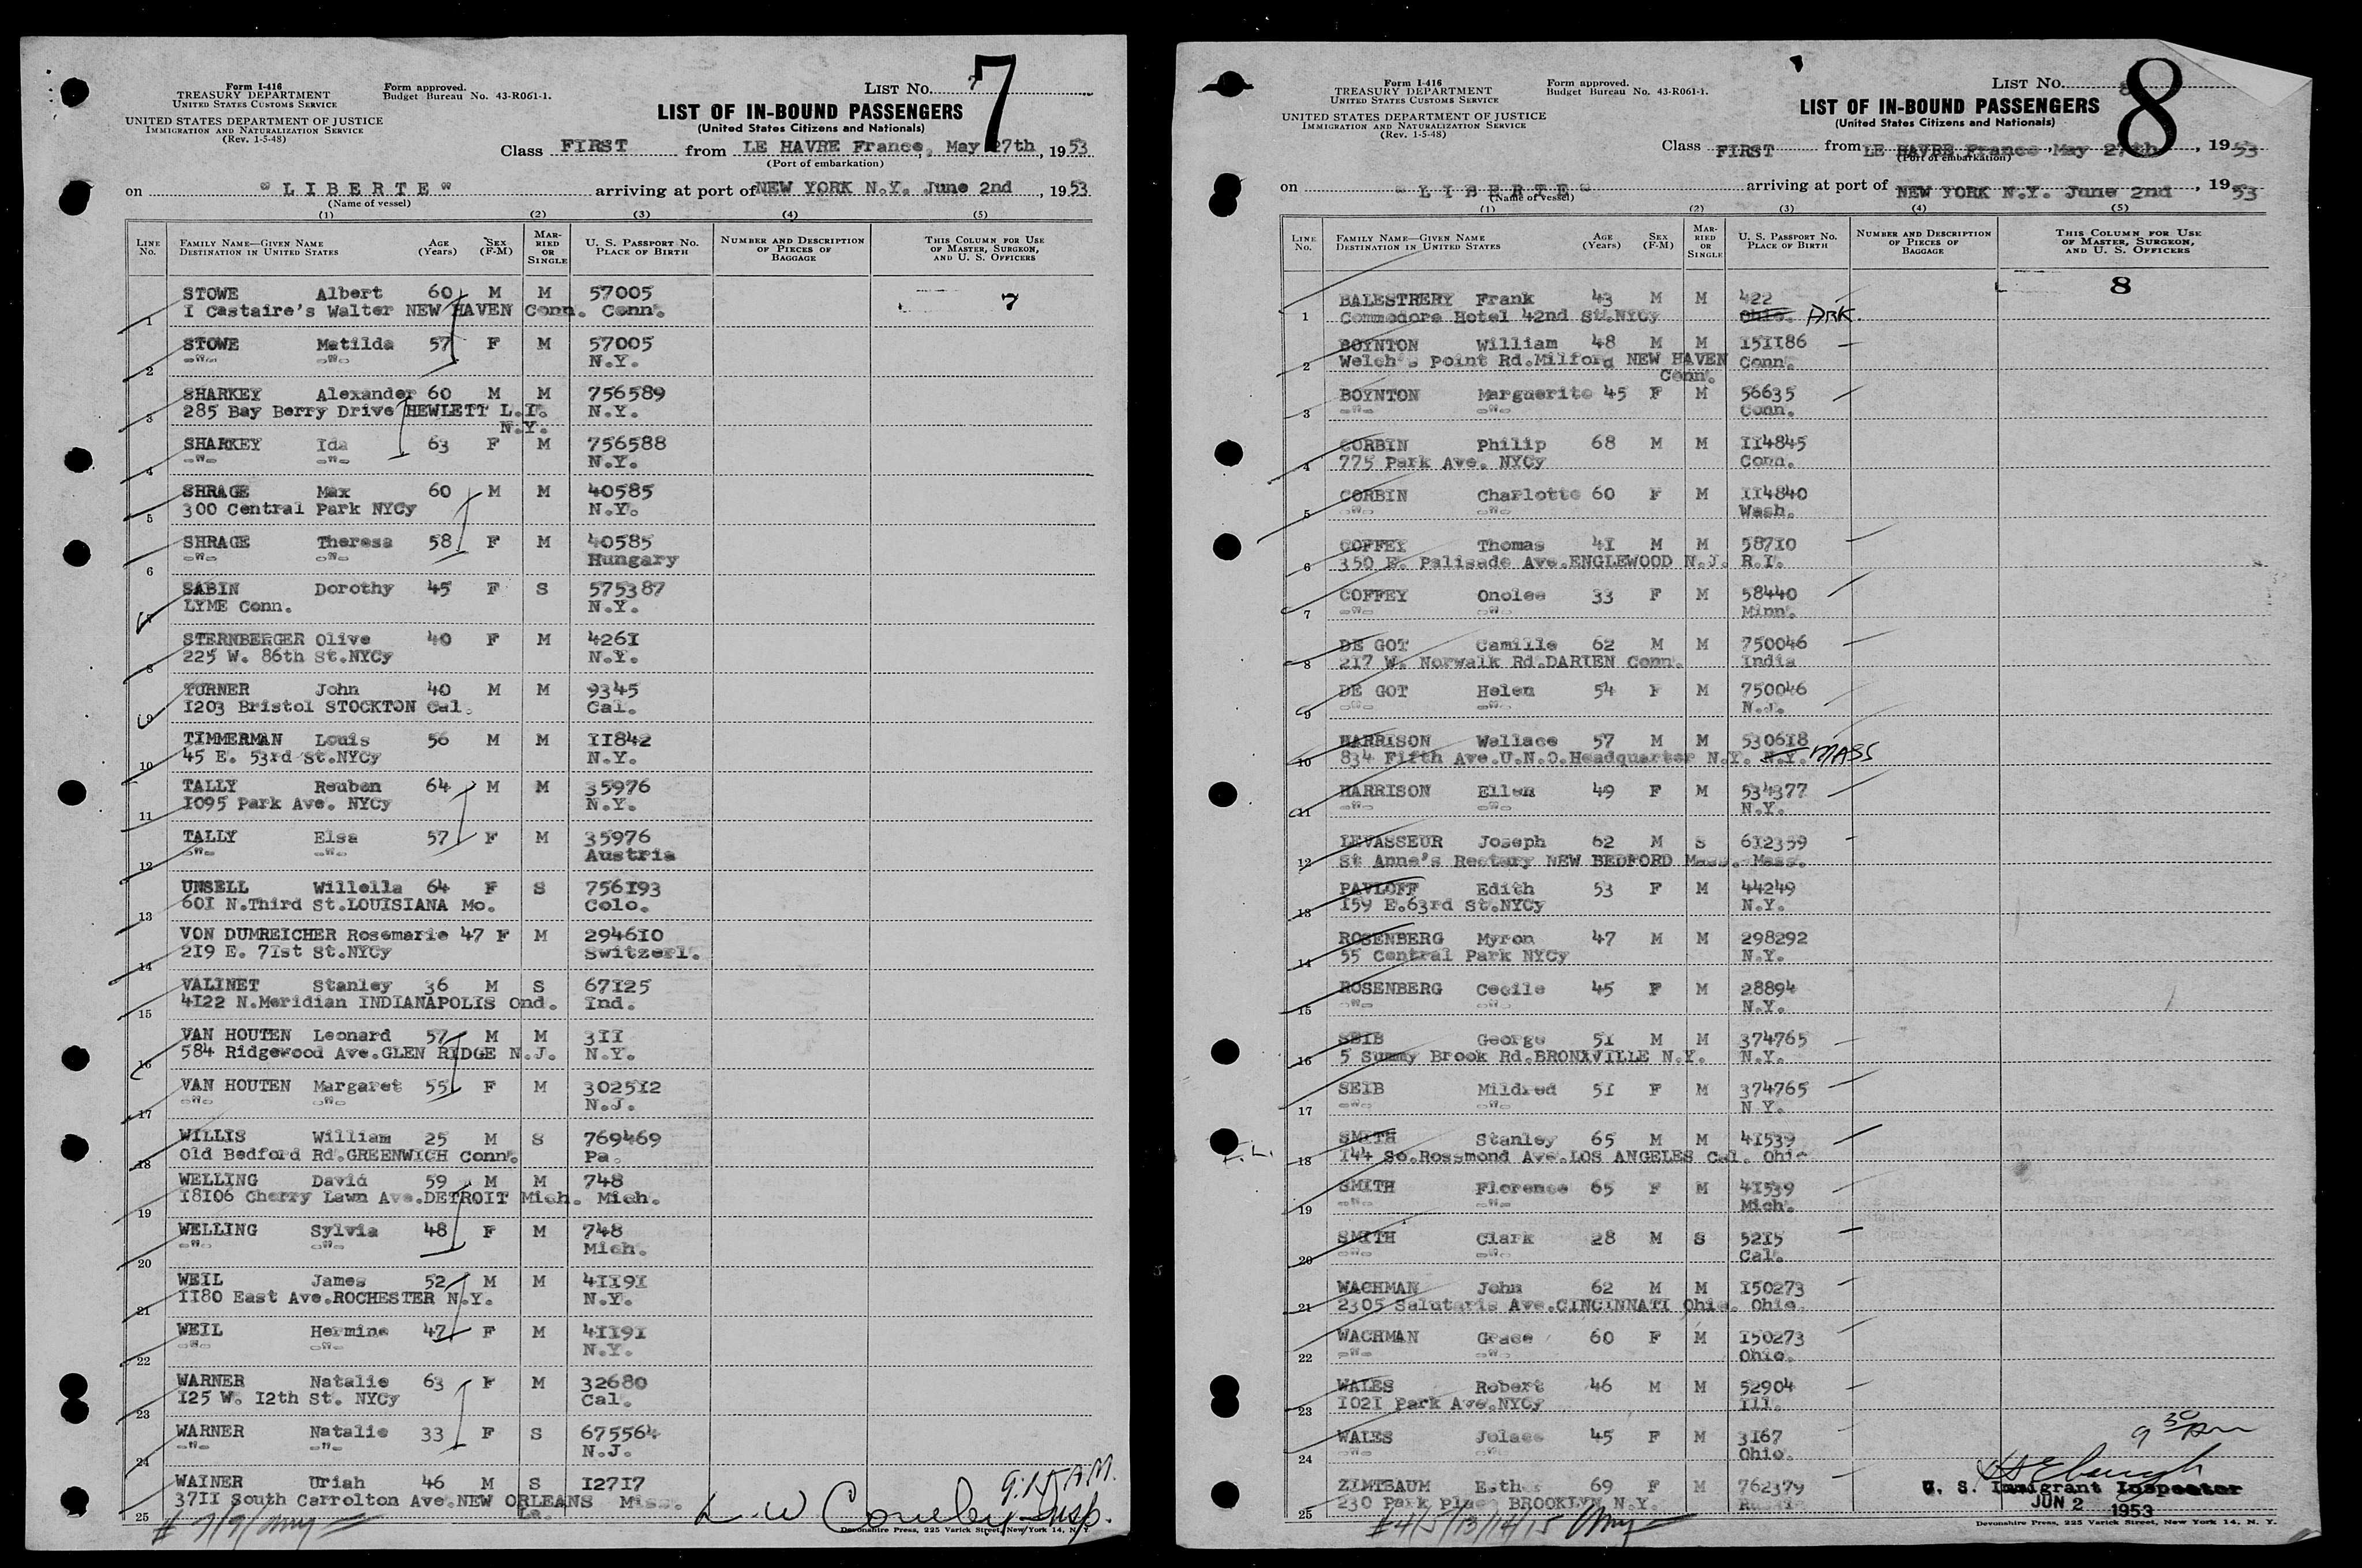 Form I-416
TREASURY DEPARTMENT
UNITED STATES CUSTOMS SERVICE
UNITED STATES DEPARTMENT OF JUSTICE
IMMIGRATION AND NATURALIZATION SERVICE
(Rev. 1-5-48)
Form approved.
Budget Bureau No. 43-R061-1.
LIST No. 7
7
LIST OF IN-BOUND PASSENGERS
(United States Citizens and Nationals)
Class FIRST from LE HAVRE France, May 27th, 1953
(Port of embarkation)
on "LIBERTE" arriving at port of NEW YORK N.Y. June 2nd, 1953
(Name of vessel)
(1) (2) (3) (4) (5)
LINE No. FAMILY NAME—GIVEN NAME DESTINATION IN UNITED STATES AGE (Years) SEX (F-M) MARRIED OR SINGLE U. S. PASSPORT NO. PLACE OF BIRTH NUMBER AND DESCRIPTION OF PIECES OF BAGGAGE THIS COLUMN FOR USE OF MASTER, SURGEON, AND U. S. OFFICERS
7
STOWE Albert 60 M M 57005
1 I Castaire's Walter NEW HAVEN Conn. Conn.
STOWE Matilda 57 F M 57005
2 -"- -"- N.Y.
SHARKEY Alexander 60 M M 756589
3 285 Bay Berry Drive HEWLETT L.I. N.Y.
N.Y.
SHARKEY Ida 63 F M 756588
4 -"- -"- N.Y.
SHRAGE Max 60 M M 40585
5 300 Central Park NYCy N.Y.
SHRAGE Theresa 58 F M 40585
6 -"- -"- Hungary
SABIN Dorothy 45 F S 575387
7 LYME Conn. N.Y.
STERNBERGER Olive 40 F M 426I
8 225 W. 86th St.NYCy N.Y.
TURNER John 40 M M 9345
9 I203 Bristol STOCKTON Cal. Cal.
TIMMERMAN Louis 56 M M II842
10 45 E. 53rd St.NYCy N.Y.
TALLY Reuben 64 M M 35976
11 I095 Park Ave. NYCy N.Y.
TALLY Elsa 57 F M 35976
12 -"- -"- Austria
UNSELL Willella 64 F S 756I93
13 60I N.Third St.LOUISIANA Mo. Colo.
VON DUMREICHER Rosemarie 47 F M 2946I0
14 2I9 E. 7Ist St.NYCy Switzerl.
VALINET Stanley 36 M S 67I25
15 4I22 N.Meridian INDIANAPOLIS Ond. Ind.
VAN HOUTEN Leonard 57 M M 3II
16 584 Ridgewood Ave.GLEN RIDGE N.J. N.Y.
VAN HOUTEN Margaret 55 F M 3025I2
17 -"- -"- N.J.
WILLIS William 25 M S 769469
18 Old Bedford Rd.GREENWICH Conn. Pa.
WELLING David 59 M M 748
19 I8I06 Cherry Lawn Ave.DETROIT Mich. Mich.
WELLING Sylvia 48 F M 748
20 -"- -"- Mich.
WEIL James 52 M M 4II9I
21 II80 East Ave.ROCHESTER N.Y. N.Y.
WEIL Hermine 47 F M 4II9I
22 -"- -"- N.Y.
WARNER Natalie 63 F M 32680
23 I25 W. I2th St. NYCy Cal.
WARNER Natalie 33 F S 675564
24 -"- -"- N.J.
WAINER Uriah 46 M S I27I7
25 37II South Carrolton Ave.NEW ORLEANS Miss.
La.
9:15 A.M.
Insp.
Devonshire Press, 225 Varick Street, New York 14, N. Y.
Form I-416
TREASURY DEPARTMENT
UNITED STATES CUSTOMS SERVICE
UNITED STATES DEPARTMENT OF JUSTICE
IMMIGRATION AND NATURALIZATION SERVICE
(Rev. 1-5-48)
Form approved.
Budget Bureau No. 43-R061-1.
LIST No. 8
8
LIST OF IN-BOUND PASSENGERS
(United States Citizens and Nationals)
Class FIRST from LE HAVRE France, May 27th, 1953
(Port of embarkation)
on "LIBERTE" arriving at port of NEW YORK N.Y. June 2nd, 1953
(Name of vessel)
(1) (2) (3) (4) (5)
LINE No. FAMILY NAME—GIVEN NAME DESTINATION IN UNITED STATES AGE (Years) SEX (F-M) MARRIED OR SINGLE U. S. PASSPORT NO. PLACE OF BIRTH NUMBER AND DESCRIPTION OF PIECES OF BAGGAGE THIS COLUMN FOR USE OF MASTER, SURGEON, AND U. S. OFFICERS
8
BALESTRERY Frank 43 M M 422
1 Commodore Hotel 42nd St.NYCy Ohio. ARK.
BOYNTON William 48 M M I5II86
2 Welch's Point Rd.Milford NEW HAVEN Conn.
Conn.
BOYNTON Marguerite 45 F M 56635
3 -"- -"- Conn.
CORBIN Philip 68 M M II4845
4 775 Park Ave. NYCy Conn.
CORBIN Charlotte 60 F M II4840
5 -"- -"- Wash.
COFFEY Thomas 4I M M 587I0
6 350 E. Palisade Ave.ENGLEWOOD N.J. R.I.
COFFEY Onolee 33 F M 58440
7 -"- -"- Minn.
DE GOT Camille 62 M M 750046
8 2I7 W. Norwalk Rd.DARIEN Conn. India
DE GOT Helen 54 F M 750046
9 -"- -"- N.J.
HARRISON Wallace 57 M M 5306I8
10 834 Fifth Ave.U.N.O.Headquarter N.Y. N.Y. MASS
HARRISON Ellen 49 F M 534377
11 -"- -"- N.Y.
LEVASSEUR Joseph 62 M S 6I2359
12 St Anne's Rectary NEW BEDFORD Mass. Mass.
PAVLOFF Edith 53 F M 44249
13 I59 E.63rd St.NYCy N.Y.
ROSENBERG Myron 47 M M 298292
14 55 Central Park NYCy N.Y.
ROSENBERG Cecile 45 F M 28894
15 -"- -"- N.Y.
SEIB George 5I M M 374765
16 5 Summy Brook Rd.BRONXVILLE N.Y. N.Y.
SEIB Mildred 5I F M 374765
17 -"- -"- N.Y.
SMITH Stanley 65 M M 4I539
18 I44 So.Rossmond Ave.LOS ANGELES Cal. Ohio
SMITH Florence 65 F M 4I539
19 -"- -"- Mich.
SMITH Clark 28 M S 52I5
20 -"- -"- Cal.
WACHMAN John 62 M M I50273
21 2305 Salutaris Ave.CINCINNATI Ohio. Ohio.
WACHMAN Grace 60 F M I50273
22 -"- -"- Ohio.
WALES Robert 46 M M 52904
23 I02I Park Ave.NYCy Ill.
WALES 45 F M 3I67
24 -"- -"- Ohio.
ZIMTBAUM Esther 69 F M 762379
25 230 Park Place BROOKLYN N.Y. Russia
9 30 Am
U. S. Immigrant Inspector
JUN 2 1953
Devonshire Press, 225 Varick Street, New York 14, N. Y.